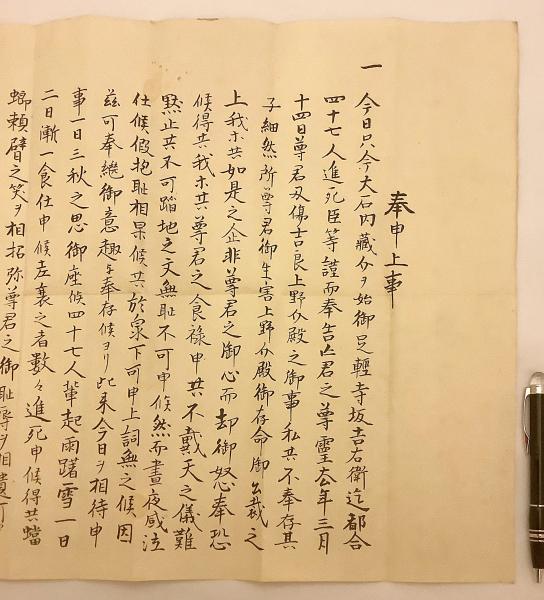 奉申上事
一
今日只今大石内藏介ヲ始御足輕寺坂吉右衛迄都合
四十七人進死臣等謹而奉告亡君之尊靈去年三月
十四日尊君刃傷吉良上野介殿之御事私共不奉存其
子細然所尊君御生害上野介殿御存命御公裁之
上我ホ共如是之企非尊君之御心而却御怒奉恐
候得共我ホ共尊君之食祿申共不戴天之儀難
黙止共不可蹈地之文無恥不可申候然而晝夜感泣
仕候假抱恥相果候共於泉下可申上詞無之候因
茲可奉繼御意趣ヲ奉存候ヨリ此来今日ヲ相待申
事一日三秋之思御座候四十七人輩起雨躇雪一日
二日漸一食仕申候老衰之者數々進死申候得共蟷
螂頼臂之笑ヲ相招弥尊君之御恥辱ヲ相遺可